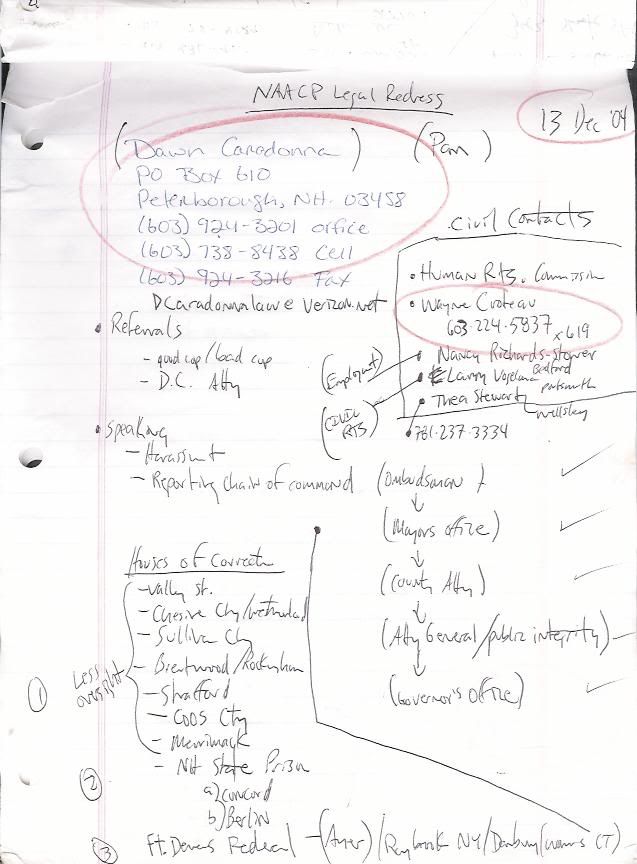 NAACP Legal Redress
13 Dec '04
(Dawn Caradonna)
(Pam)
PO Box 610
Peterborough, NH. 03458
(603) 924-3201 office
(603) 738-8438 Cell
(603) 924-3216 Fax
DCaradonnalaw@verizon.net
Civil Contacts
• Human Rts. Commission
• Wayne Croteau
603-224-5837 x 619
(Employmt)
• Nancy Richards-Stower
(Civil Rts)
• Larry Vogelman Bedford
Portsmouth
• Thea Stewart
Wellsley
• 781-237-3334
• Referrals
- good cop/bad cop
- D.C. Atty
• Speaking
- Harassmt
- Reporting chain of command
(Ombudsman)
(Mayors office)
(County Atty)
(Atty General/public integrity)
(Governor's office)
Houses of Correctn
1 Less oversight
- Valley St.
- Chesire Cty/Westmorland
- Sullivan Cty
- Brentwood/Rockingham
- Strafford
- COOS Cty
- Merrimack
2
- NH State Prison
a) Concord
b) Berlin
3 Ft. Devens Federal - (Ayer)/Raybrook NY/Danbury CT)